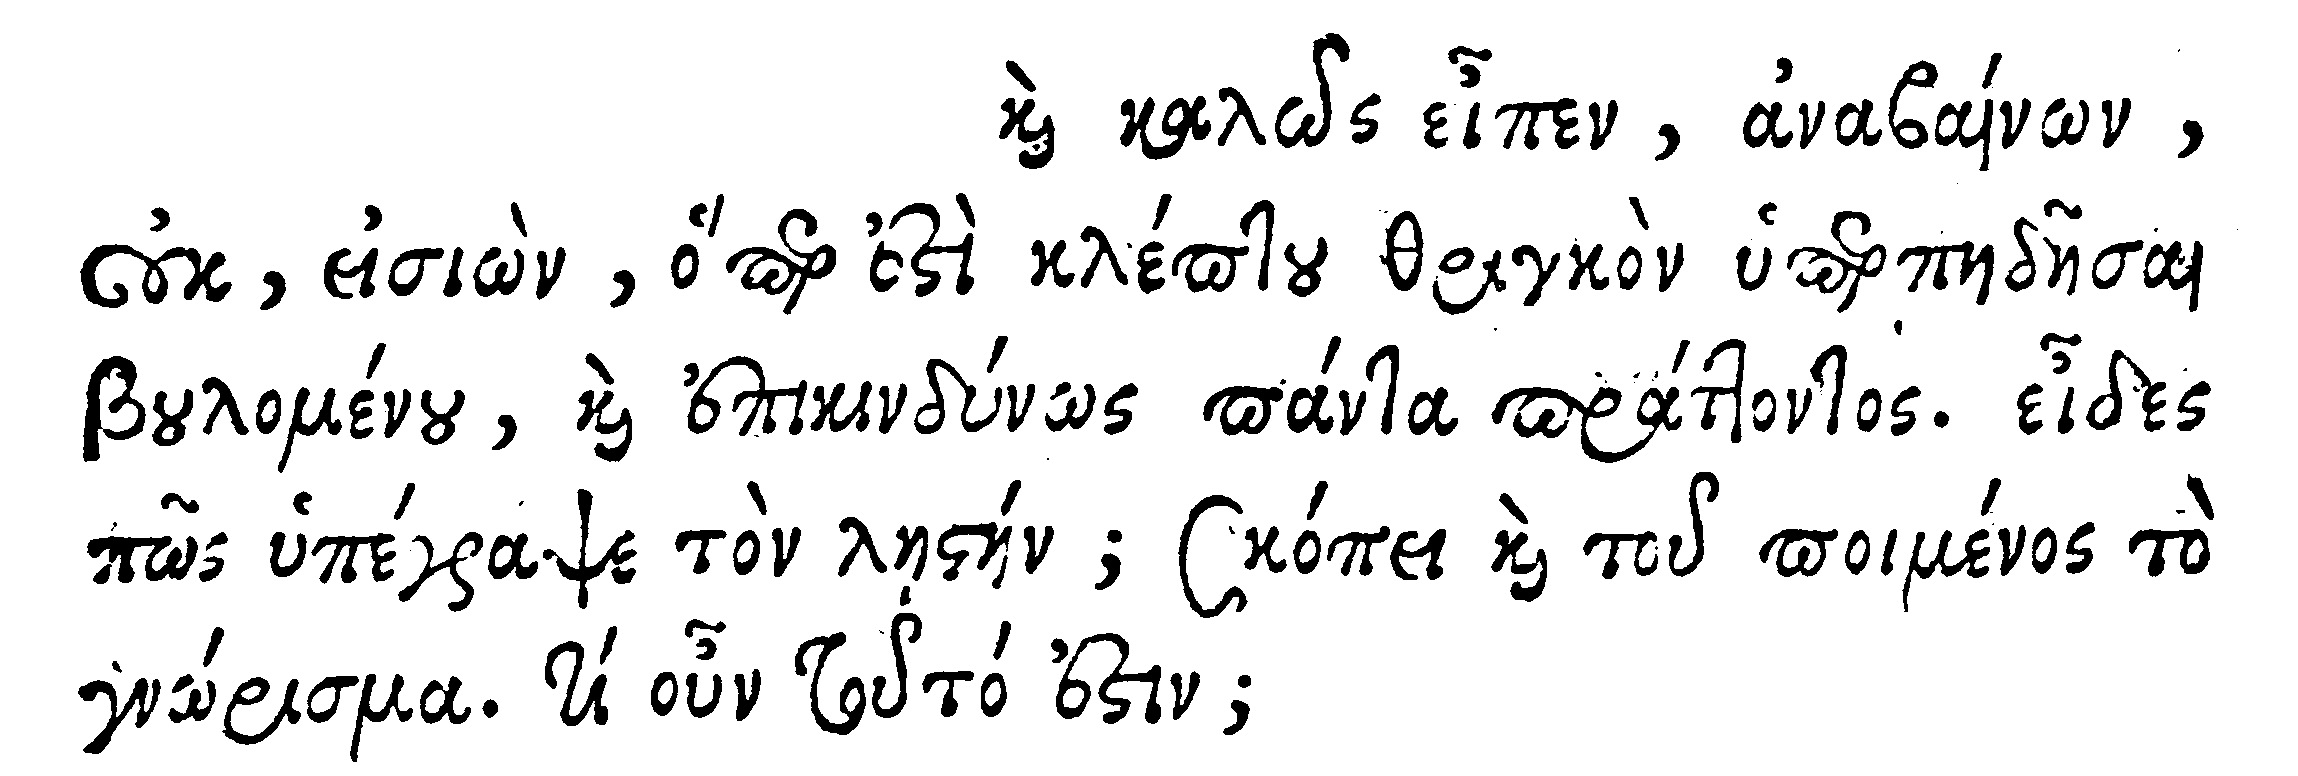 καὶ καλῶς εἶπεν, ἀναβαίνων,
οὐκ, εἰσιὼν, ὅπερ ἐστὶ κλέπτου θριγκὸν ὑπερπηδῆσαι
βουλομένου, καὶ ἐπικινδύνως πάντα πράττοντος. εἶδες
πῶς ὑπέγραψε τὸν ληστήν; Σκόπει καὶ τοῦ ποιμένος τὸ
γνώρισμα. τί οὖν τοῦτό ἐστιν;